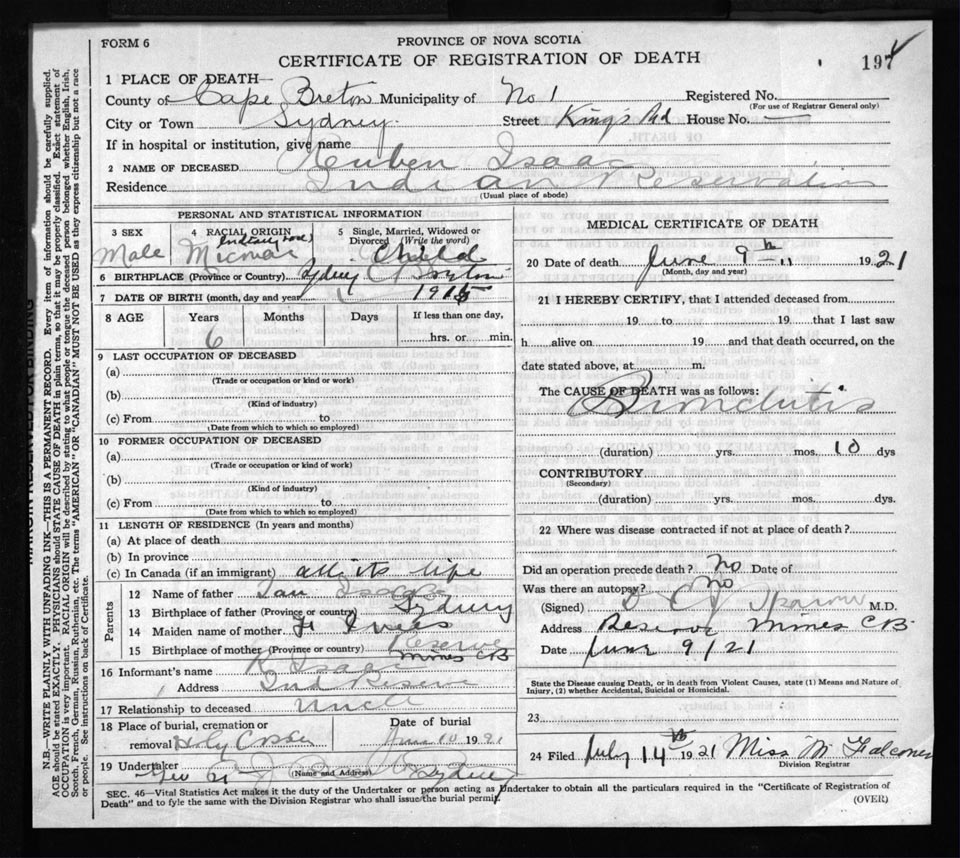 FORM 6
PROVINCE OF NOVA SCOTIA
CERTIFICATE OF REGISTRATION OF DEATH
197
1 PLACE OF DEATH—
County of Cape Breton Municipality of No 1 Registered No.
(For use of Registrar General only)
City or Town Sydney Street King's Rd House No. —
If in hospital or institution, give name
2 NAME OF DECEASED Reuben Isaac
Residence Indian Reservation
(Usual place of abode)
PERSONAL AND STATISTICAL INFORMATION
3 SEX Male
4 RACIAL ORIGIN Micmac
5 Single, Married, Widowed or Divorced (Write the word) Child
6 BIRTHPLACE (Province or Country) Sydney C Breton
7 DATE OF BIRTH (month, day and year) 1915
8 AGE Years Months Days If less than one day,
6 hrs. or min.
9 LAST OCCUPATION OF DECEASED
(a)
(Trade or occupation or kind or work)
(b)
(Kind of industry)
(c) From to
(Date from which to which so employed)
10 FORMER OCCUPATION OF DECEASED
(a)
(Trade or occupation or kind or work)
(b)
(Kind of industry)
(c) From to
(Date from which to which so employed)
11 LENGTH OF RESIDENCE (In years and months)
(a) At place of death
(b) In province
(c) In Canada (if an immigrant) all its life
Parents
12 Name of father Isaac
13 Birthplace of father (Province or country) Sydney
14 Maiden name of mother
15 Birthplace of mother (Province or country) Reserve Mines CB
16 Informant's name R Isaac
Address Ind Reserve
17 Relationship to deceased Uncle
18 Place of burial, cremation or removal Holy Cross
Date of burial June 10 1921
19 Undertaker Sydney
(Name and Address)
MEDICAL CERTIFICATE OF DEATH
20 Date of death June 9th 1921
(Month, day and year)
21 I HEREBY CERTIFY, that I attended deceased from
19 to 19 that I last saw
h alive on 19 and that death occurred, on the
date stated above, at m.
The CAUSE OF DEATH was as follows:
Bronchitis
(duration) yrs. mos. 10 dys
CONTRIBUTORY
(Secondary)
(duration) yrs. mos. dys.
22 Where was disease contracted if not at place of death?
Did an operation precede death? No Date of
Was there an autopsy? No
(Signed) M.D.
Address Reserve Mines CB
Date June 9/21
State the Disease causing Death, or in death from Violent Causes, state (1) Means and Nature of
Injury, (2) whether Accidental, Suicidal or Homicidal.
23
24 Filed July 14th 1921 Miss M Falconer
Division Registrar
SEC. 46—Vital Statistics Act makes it the duty of the Undertaker or person acting as Undertaker to obtain all the particulars required in the "Certificate of Registration of
Death" and to fyle the same with the Division Registrar who shall issue the burial permit.
(OVER)
N.B.—WRITE PLAINLY WITH UNFADING INK—THIS IS A PERMANENT RECORD. Every item of information should be carefully supplied.
AGE should be stated EXACTLY. PHYSICIANS should STATE CAUSE OF DEATH in plain terms, so that it may be properly classified. Exact statement of
OCCUPATION is very important. RACIAL ORIGIN will be described by stating to what people or tongue the deceased person belonged whether English, Irish,
Scotch, French, German, Russian, Ruthenian, etc. The terms "AMERICAN" OR "CANADIAN" MUST NOT BE USED as they express citizenship but not a race
or people. See instructions on back of Certificate.